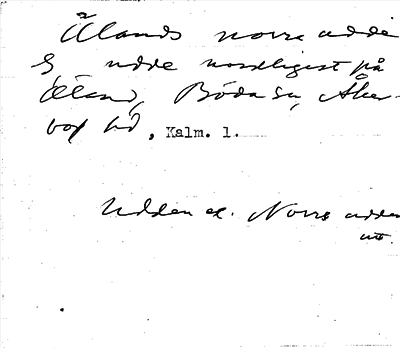 Ölands norra udde
S udde nordligast på
Öland, Böda sn, Åker-
bo hd, Kalm. l.
Udden el. Norra udden